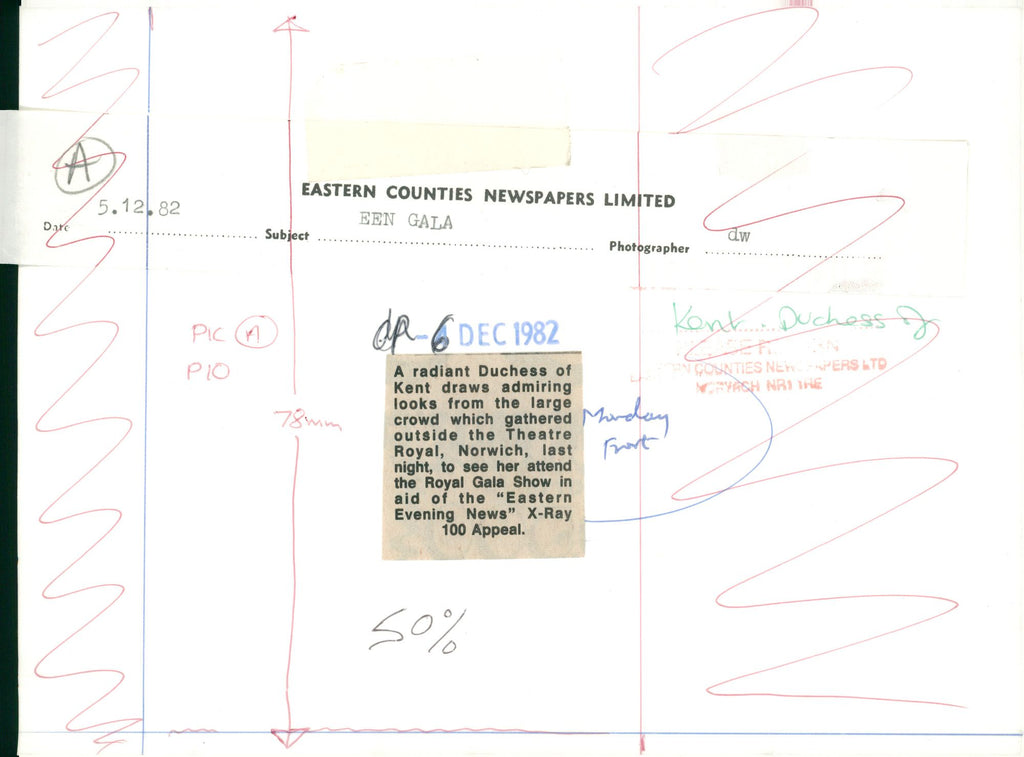 A
EASTERN COUNTIES NEWSPAPERS LIMITED
Date 5.12.82 Subject EEN GALA Photographer dw
Kent. Duchess of
6 DEC 1982
PIC A
P10
EASTERN COUNTIES NEWSPAPERS LTD
NORWICH NR1 1RE
A radiant Duchess of
Kent draws admiring
looks from the large
crowd which gathered
outside the Theatre
Royal, Norwich, last
night, to see her attend
the Royal Gala Show in
aid of the "Eastern
Evening News" X-Ray
100 Appeal.
78mm
Monday
Front
50%